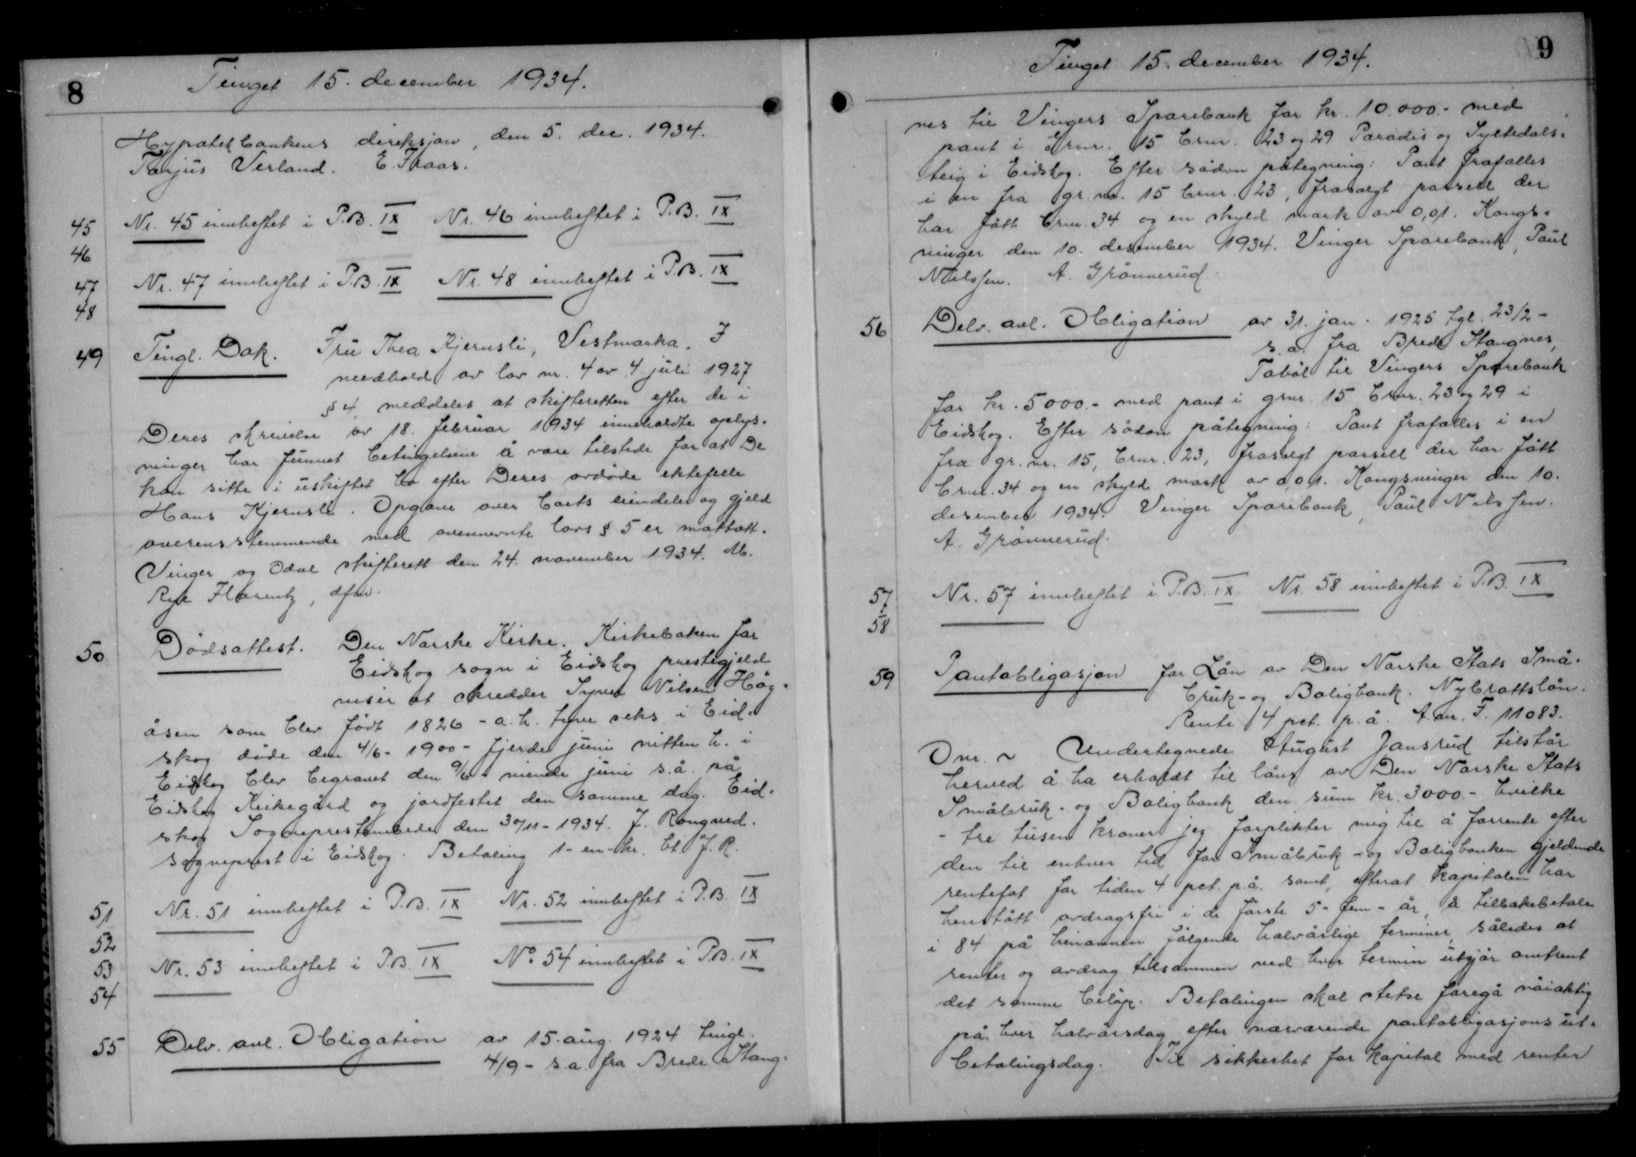 8
Tinget 15. december 1934.
Hypotekbankens direksjon, den 5. dec. 1934.
Tarjus Verland. E. Traas.
45 Nr. 45 innheftet i P.B. IX Nr. 46 innheftet i P.B. IX
46
47 Nr. 47 innheftet i P.B. IX Nr. 48 innheftet i P.B. IX
48
49 Tingl. Dok. Fru Thea Kjernsli, Vestmarka. I
medhold av lov nr. 4 av 4. juli 1927
§ 4, meddeles at skifteretten efter de i
Deres skrivelse av 18. februar 1934 inneholdte oplys-
ninger har funnet betingelsene å være tilstede for at De
kan sitte i uskiftet bo efter Deres avdøde ektefelle
Hans Kjernsli. Opgave over boets eiendeler og gjeld
overensstemmende med ovennevnte lovs § 5 er mottatt.
Vinger og Odal skifterett den 24. november 1934. M.
Rye Florentz, dfm.
50 Dødsattest. Den Norske Kirke. Kirkeboken for
Eidskog sogn i Eidskog prestegjeld
viser at skredder Syver Nilsen Håg-
åsen som blev født 1826 - a.h. tyve seks i Eid-
skog døde den 4/6 - 1900 - fjerde juni nitten h. i
Eidskog blev begravet den 9/6 - niende juni s.å. på
Eidskog Kirkegård og jordfestet den samme dag. Eid-
skog Sogneprestembede den 30/11 - 1934. J. Rongved.
sogneprest i Eidskog. Betaling 1 - en - kr. bt. J. R.
51 Nr. 51 innheftet i P.B. IX Nr. 52 innheftet i P.B. IX
52
53 Nr. 53 innheftet i P.B. IX No. 54 innheftet i P.B. IX
54
55 Delv. avl. Obligation av 15. aug. 1924 tingl.
4/9 - s.a. fra Brede Stang-
9
Tinget 15. december 1934.
nes til Vingers Sparebank for kr. 10.000.- med
pant i grnr. 15 brnr. 23 og 29 Paradis og Syltedals-
teig i Eidskog. Efter sådan påtegning: Pant frafalles
i en fra gr.nr. 15 brnr. 23, frasolgt parsell der
har fått brnr. 34 og en skyld mark av 0,01. Kongs-
vinger den 10. desember 1934. Vinger Sparebank, Paul
Nilssen. A. Grønnerud.
56 Delv. avl. Obligation av 31. jan. 1925 tgl. 23/2 -
s.a. fra Brede Stangnes,
Tobøl til Vingers Sparebank
for kr. 5000.- med pant i grnr. 15 brnr. 23 og 29 i
Eidskog. Efter sådan påtegning: Pant frafalles i en
fra gr.nr. 15, brnr. 23, frasolgt parsell der har fått
brnr. 34 og en skyld mark av 0,01. Kongsvinger den 10.
desember 1934. Vinger Sparebank, Paul Nilssen.
A. Grønnerud.
57 Nr. 57 innheftet i P.B. IX Nr. 58 innheftet i P.B. IX
58
59 Pantobligasjon for Lån av Den Norske Stats Små-
bruk- og Boligbank. Nybrottslån.
Rente 4 pct. p.å. A.nr. F. 11083.
Dnr. ~ Undertegnede August Jansrud tilstår
herved å ha erholdt til låns av Den Norske Stats
Småbruk- og Boligbank den sum kr. 3000.- hvilke
- tre tusen kroner jeg forplikter mig til å forrente efter
den til enhver tid for Småbruk- og Boligbanken gjeldende
rentefot for tiden 4 pct. p.å. samt, efterat kapitalen har
henstått avdragsfri i de første 5 - fem - år, å tilbakebetale
i 84 på hinannen følgende halvårlige terminer således at
renter og avdrag tilsammen ved hver termin utgjør omtrent
det samme beløp. Betalingen skal stetse foregå nøiaktig
på hver halvårsdag efter nærværende pantobligasjons ut-
betalingsdag. Til sikkerhet for kapital med renter